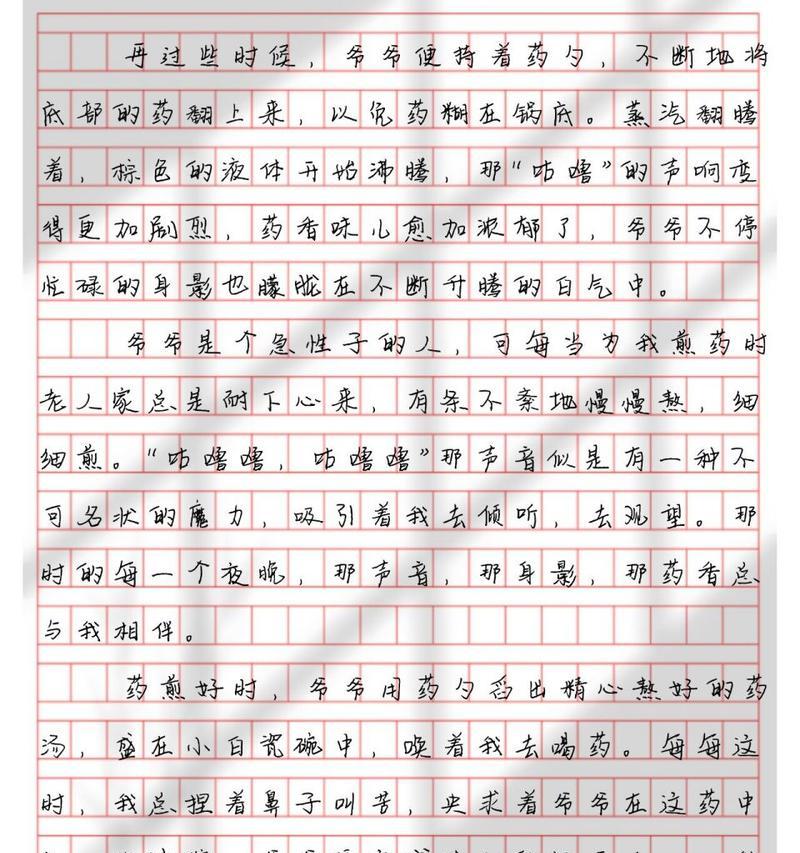 再过些时候，爷爷便持着药勺，不断地将
底部的药翻上来，以免药糊在锅底。蒸汽翻腾
着，棕色的液体开始沸腾，那“咕噜”的声响变
得更加剧烈，药香味儿愈加浓郁了，爷爷不停
忙碌的身影也朦胧在不断升腾的白气中。
爷爷是个急性子的人，可每当为我煎药时
老人家总是耐下心来，有条不紊地慢慢熬，细
细煎。“咕噜噜，咕噜噜”那声音似是有一种不
可名状的魔力，吸引着我去倾听，去观望。那
时的每一个夜晚，那声音，那身影，那药香总
与我相伴。
药煎好时，爷爷用药勺舀出精心熬好的药
汤，盛在小白瓷碗中，唤着我去喝药。每每这
时，我总捏着鼻子叫苦，央求着爷爷在这药中